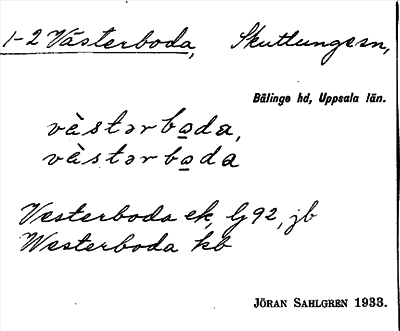 1-2 Västerboda, Skuttungesn,
Bälinge hd, Uppsala län.
vàstərbo̲da,
vàstərbo̲da
Vesterboda ek, Lj 92, jb
Westerboda kb
JÖRAN SAHLGREN 1933.